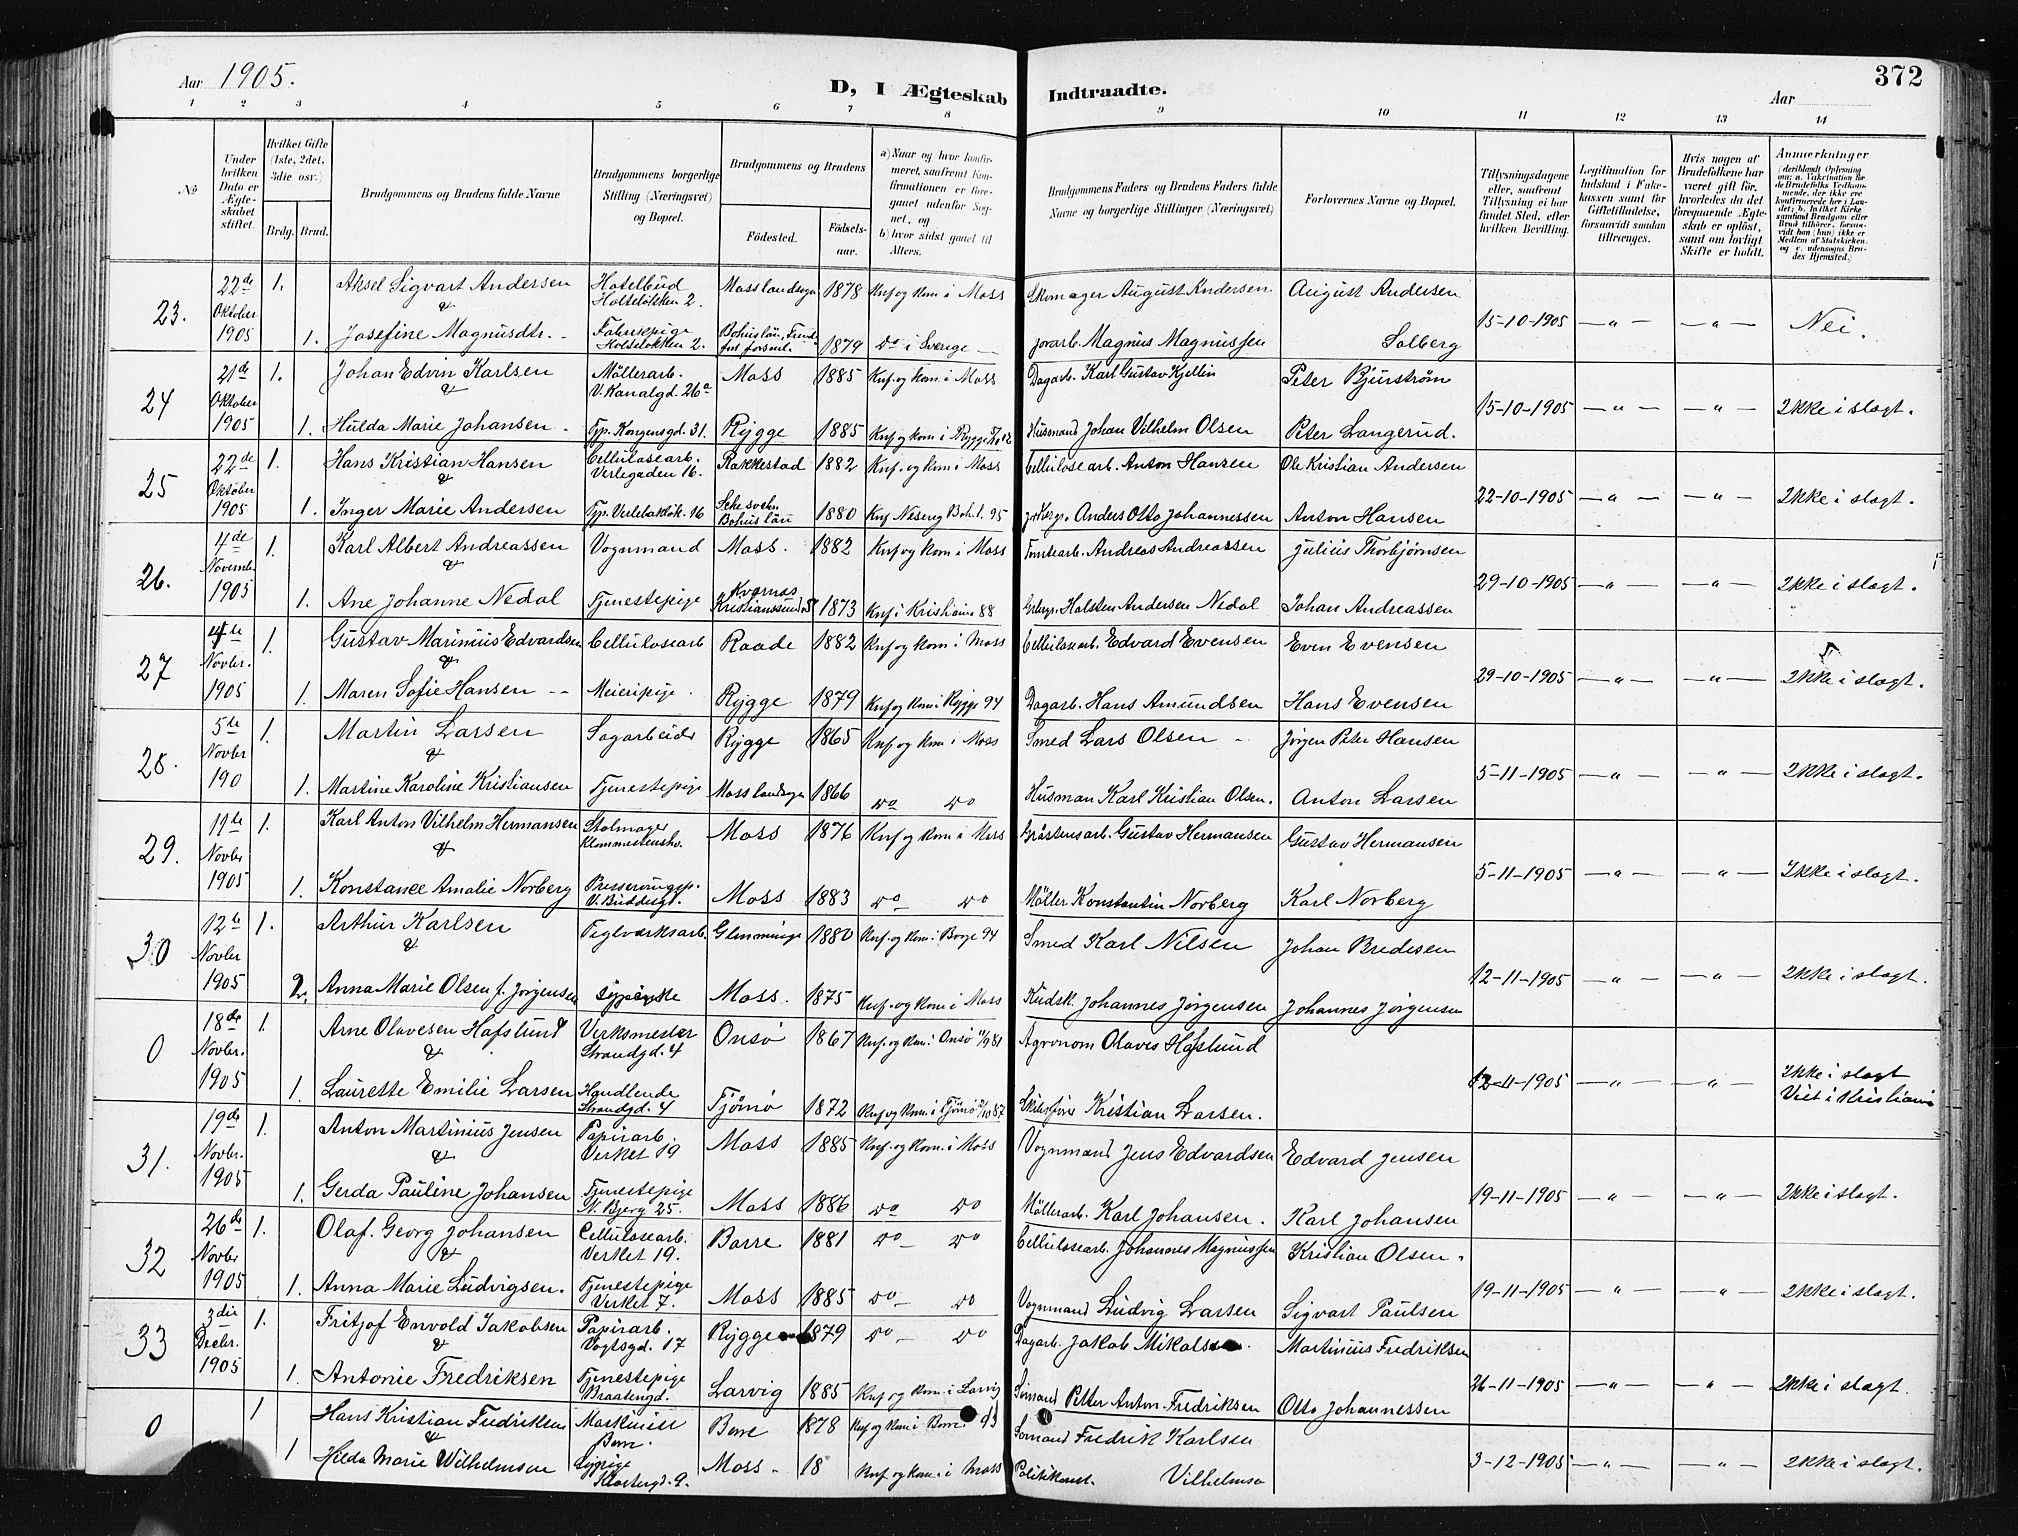 Aar 1905. D, I Ægteskab Indtraadte. Aar 372
1 2 3 4 5 6 7 8 9 10 11 12 13 14
No
Under hvilken Dato er Ægteskabet stiftet.
Hvilket Gifte (1ste, 2det, 3die osv.)
Brdg. Brud.
Brudgommens og Brudens fulde Navne
Brudgommens borgerlige Stilling (Næringsvei) og Bopæl.
Brudgommens og Brudens
Fødested. Fødselsaar.
a) Naar og hvor konfirmeret, saafremt Konfirmationen er foregaaet udenfor Sognet, og
b) hvor sidst gaaet til Alters.
Brudgommens Faders og Brudens Faders fulde Navne og borgerlige Stillinger (Næringsvei)
Forlovernes Navne og Bopæl.
Tillysningsdagene eller, saafremt Tillysning ei har fundet Sted, efter hvilken Bevilling.
Legitimation for Indskud i Enkekassen samt for Giftetilladelse, forsaavidt saadan tiltrænges.
Hvis nogen af Brudefolkene har været gift før, hvorledes da det foregaaende Ægteskab er opløst, samt om lovligt Skifte er holdt.
Anmærkninger
23. 22de Oktober 1905 1. Aksel Sigvart Andersen & Hotelbud Holteløkken 2. Mosslandsogn 1878 Knf og kom i Moss Skomager August Andersen August Andersen
1. Josefine Magnusdtr. Fabrikpige Holteløkken 2. 1879 do i Sverige jorarb. Magnus Magnussen Solberg 15-10-1905 — " — — " — Nei.
24 21de Oktober 1905 1. Johan Edvin Karlsen & Möllerarb. V. Kanalgd. 26a Moss 1885 Knf. og kom i Moss Dagarb. Karl Gustav Kjellin Peter Bjurstrøm
1. Hulda Marie Johansen Kongensgd. 31. Rygge 1885 Knf og kom i Rygge Husmand Johan Vilhelm Olsen Peter Langerud. 15-10-1905 — " — — " — Ikke i slægt.
25 22de Oktober 1905 1. Hans Kristian Hansen & Cellulosearb. Verlegaden 16. Rakkestad 1882 Knf. og kom i Moss Cellulosearb. Anton Hansen Ole Kristian Andersen
1. Inger Marie Andersen Bohuslän 1880 95 Anders Otto Johannessen Anton Hansen 22-10-1905 — " — — " — Ikke i slægt.
26. 4de Novembr 1905 1. Karl Albert Andreassen & Vognmand Moss. 1882 Knf og kom i Moss Tomtearb. Andreas Andreassen Julius Thorbjørnsen
1. Ane Johanne Nedal Tjenestepige Kvernæs Kristianssund 1873 Knf i Kristiania 88 Holsten Andersen Nedal Johan Andreassen 29-10-1905 — " — — " — Ikke i slægt.
27 4de Novbr. 1905 1. Gustav Marinius Edvardsen & Cellulosearb Raade 1882 Knf og kom i Moss Cellulosearb. Edvard Evensen Even Evensen
1. Maren Sofie Hansen Meieripige. Rygge 1879 Knf og kom i Rygge 94 Dagarb. Hans Amundsen Hans Evensen 29-10-1905 — " — — " — Ikke i slægt.
28. 5te Novbr 190 1. Martin Larsen & Sagarbeider Rygge 1865 Knf og kom i Moss Smed Lars Olsen Jørgen Peter Hansen
1. Martine Karoline Kristiansen Tjenestepige Mosslandsogn 1866 do do Husman Karl Kristian Olsen. Anton Larsen 5-11-1905 — " — — " — Ikke i slægt.
29. 11te Novbr 1905 1. Karl Anton Vilhelm Hermansen & Stolmager Moss 1876 Knf og kom i Moss Gustav Hermansen Gustav Hermansen
1. Konstance Amalie Norberg Moss 1883 do do Möller Konstantin Norberg Karl Norberg 5-11-1905 — " — — " — Ikke i slægt.
30 12te Novbr 1905 1. Arthur Karlsen & Teglværksarb. Glemminge 1880 Knf. og kom i Borge 94 Smed Karl Nilsen Johan Bredesen
2. Anna Marie Olsen f. Jørgensen Moss. 1875 Knf. og kom i Moss Kudsk. Johannes Jørgensen Johannes Jørgensen 12-11-1905 — " — — " — Ikke i slægt.
0 18de Novbr. 1905 1. Arne Olavesen Hafslund & Verksmester Strandgd. 4 Onsø 1867 Knf. og kom i Onsø Agronom Olaves Hafslund
1. Laurette Emilie Larsen Handlende Strandgd. 4 Tjømø 1872 Knf og kom i Tjømø Skibsfører Kristian Larsen. 12-11-1905 — " — — " — Ikke i slægt Viet i Kristiania
31. 19de Novbr. 1905 1. Anton Martinius Jensen & Papirarb. Verket 19 Moss 1885 Knf. og kom. i Moss Vognmand Jens Edvardsen Edvard Jensen
1. Gerda Pauline Johansen Tjenestepige N. Bjerg 25. Moss 1886 do do Möllerarb. Karl Johansen. Karl Johansen 19-11-1905 — " — — " — Ikke i slægt.
32 26de Novbr 1905 1. Olaf. Georg Johansen & Cellulosearb. Verket 19. Borre 1881 do do Cellulosearb. Johannes Magnussen Kristian Olsen.
1. Anna Marie Ludvigsen. Tjenestepige Verket 7. Moss 1885 do do Vognmand Ludvig Larsen Sigvart Paulsen 19-11-1905 — " — — " — Ikke i slægt.
33 3die Decbr. 1905 1. Fritjof Envold Jakobsen & Papirarb. Vogtsgd. 17 Rygge 1879 do do Dagarb. Jakob Mikalsen. Martinius Fredriksen
1. Antonie Fredriksen Tjenestepige Braatengd. Larvig 1885 Knf og kom. i Larvig Sømand Petter Anton Fredriksen Otto Johannessen 26-11-1905 — " — — " — Ikke i slægt.
0 1 Hans Kristian Fredriksen & Maskinist Borre. Borre 1878 Knf og kom i Borre 93 Sømand Fredrik Karlsen
1 Hilda Marie Wilhelmsen Sypige Klostergd. 9. Moss 18 Knf og kom i Moss Politikonst. Vilhelmsen 3-12-1905 — " — — " — Ikke i slægt.